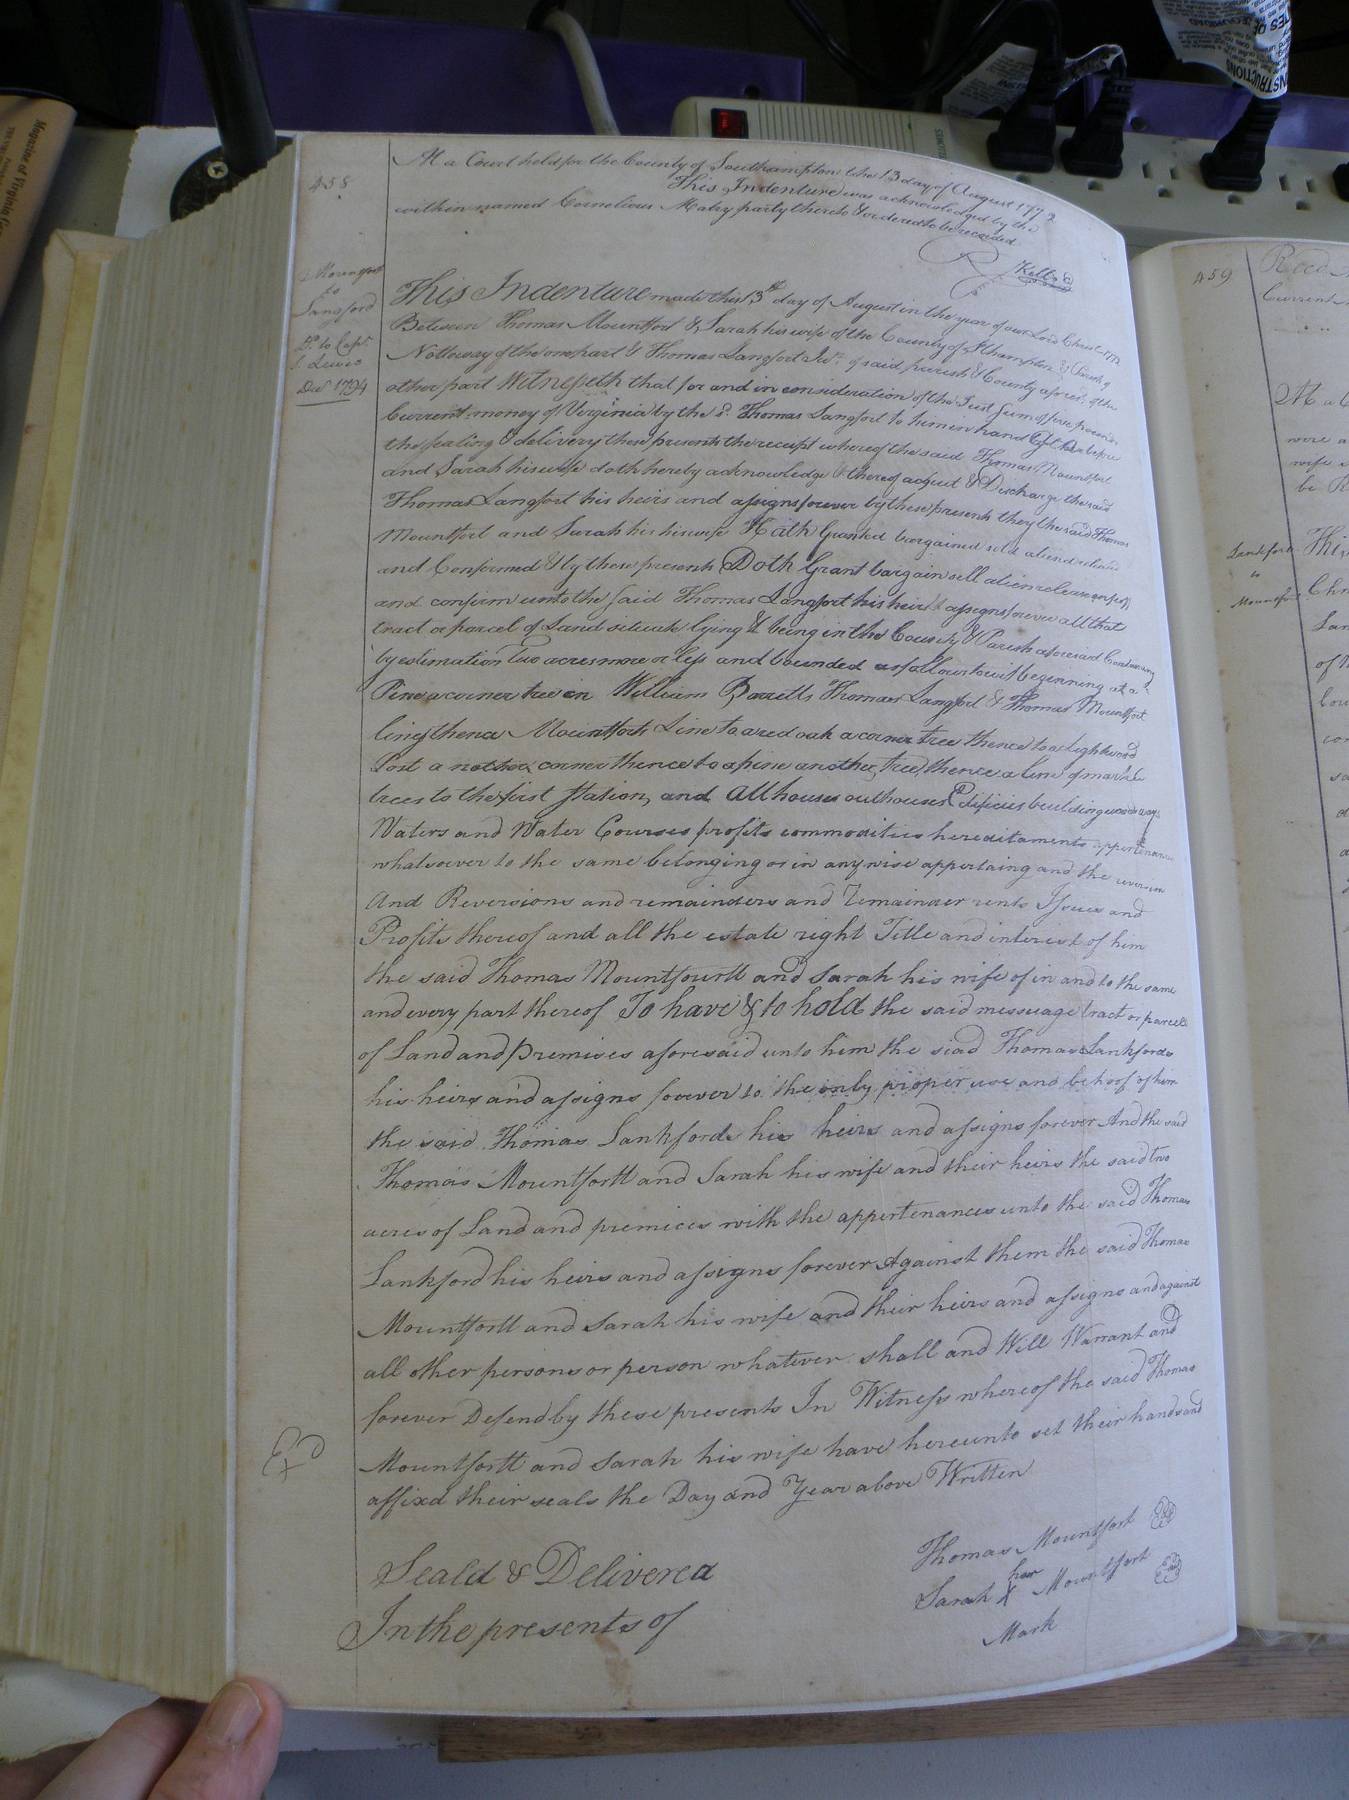 458
At a Court held for the County of Southampton the 13 day of August 1772
This Indenture was acknowledged by the
within named Cornelious Matry party thereto & ordered to be recorded
Mountfort
to
Langford
Dd. to Capt.
Lewis
Decr 1794
This Indenture made this 13th day of August in the year of our Lord Christ 1772
Between Thomas Mountford & Sarah his wife of the County of Shampton & Parish of
Nottoway of the one part & Thomas Langfort Junr. of said parish & County afores. of the
other part Witnesseth that for and in consideration of the Just sum of five pounds
Current money of Virginia by the sd. Thomas Langfort to him in hand before
the sealing & delivery these presents the receipt whereof the said Thomas Mountfort
and Sarah his wife doth hereby acknowledge & thereof acquit & Discharge the said
Thomas Langfort his heirs and assigns forever by these presents they the said Thomas
Mountfort and Sarah his his wife Hath Granted bargained sold aliend
and Confirmed & by these presents Doth Grant bargain sell alien release
and confirm unto the said Thomas Langfort his heirs & assigns forever all that
tract or parcel of Land situate lying & being in the County & Parish aforesaid Containing
by estimation Two acres more or less and bounded as follows towit beginning at a
Pine a corner tree in William Barretts Thomas Langford & Thomas Mountfort
line thence Mountforts Line to a red oak a corner tree thence to a lightwood
Post a nother corner thence to a pine another tree, thence a line of markd
trees to the first Station, and all houses outhouses Edificies beulding woods ways
Waters and Water Courses profits commodities hereditaments appertenances
whatsoever to the same belonging or in any wise appertaing and the reversion
And Reversions and remainders and Remainder rents Issues and
Profits thereof and all the estate right Title and interest of him
the said Thomas Mountfourtt and Sarah his wife of in and to the same
and every part thereof To have & to hold the said messuage tract or parcell
of Land and Premises aforesaid unto him the siad Thomas Lankforde
his heirs and assigns forever to the only proper use and behoof of him
the said Thomas Lankforde his heirs and assigns forever And the said
Thomas Mountfortt and Sarah his wife and their heirs the said two
acres of Land and premices with the appertenances unto the said Thomas
Lankford his heirs and assigns forever Against them the said Thomas
Mountfortt and Sarah his wife and their heirs and assigns and against
all other persons or person whatever shall and Will Warrant and
forever Defend by these presents In Witness whereof the said Thomas
Mountfortt and Sarah his wife have hereunto set their hands and
affixd their seals the Day and Year above Written
Seald & Delivered
In the presents of
Thomas Mountfort
her
Sarah X Mountfort
Mark
459
Recd
Current
At a C
were a
wife
be R
Lankford
to
Mountfort
This
Chr
Lan
of
Magazine of Virginia
INSTRUCTIONS